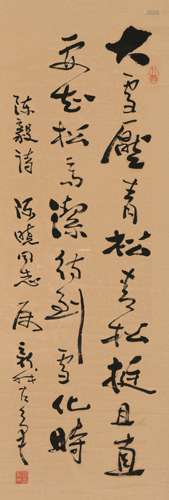 大雪壓青松青松挺且直
要知松高潔待到雪化時
陈毅诗 陈晓同志属